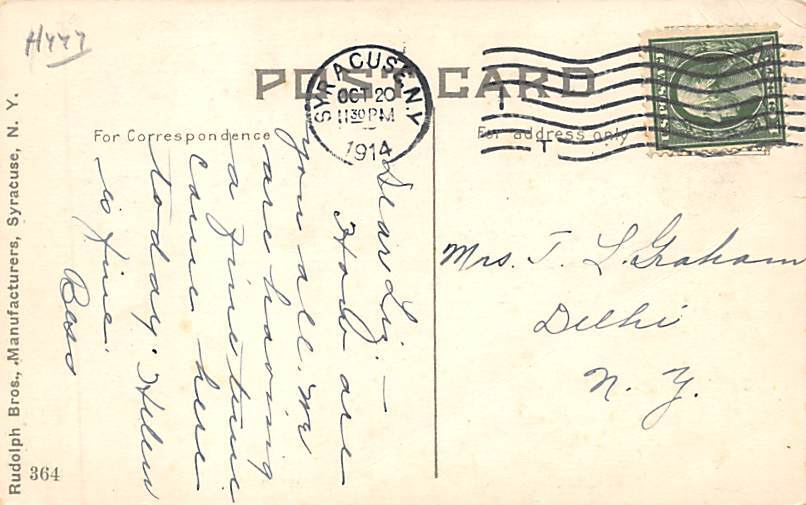 H777
POST CARD
SYRACUSE, N.Y.
OCT 20
11 30 PM
1914
T
For Correspondence
For address only
Dear Liz: —
How are
you all. We
are having
a fine time
came here
today. Helen
is fine.
Bess
Mrs. T. L. Graham
Delhi
N. Y.
Rudolph Bros., Manufacturers, Syracuse, N. Y.
364